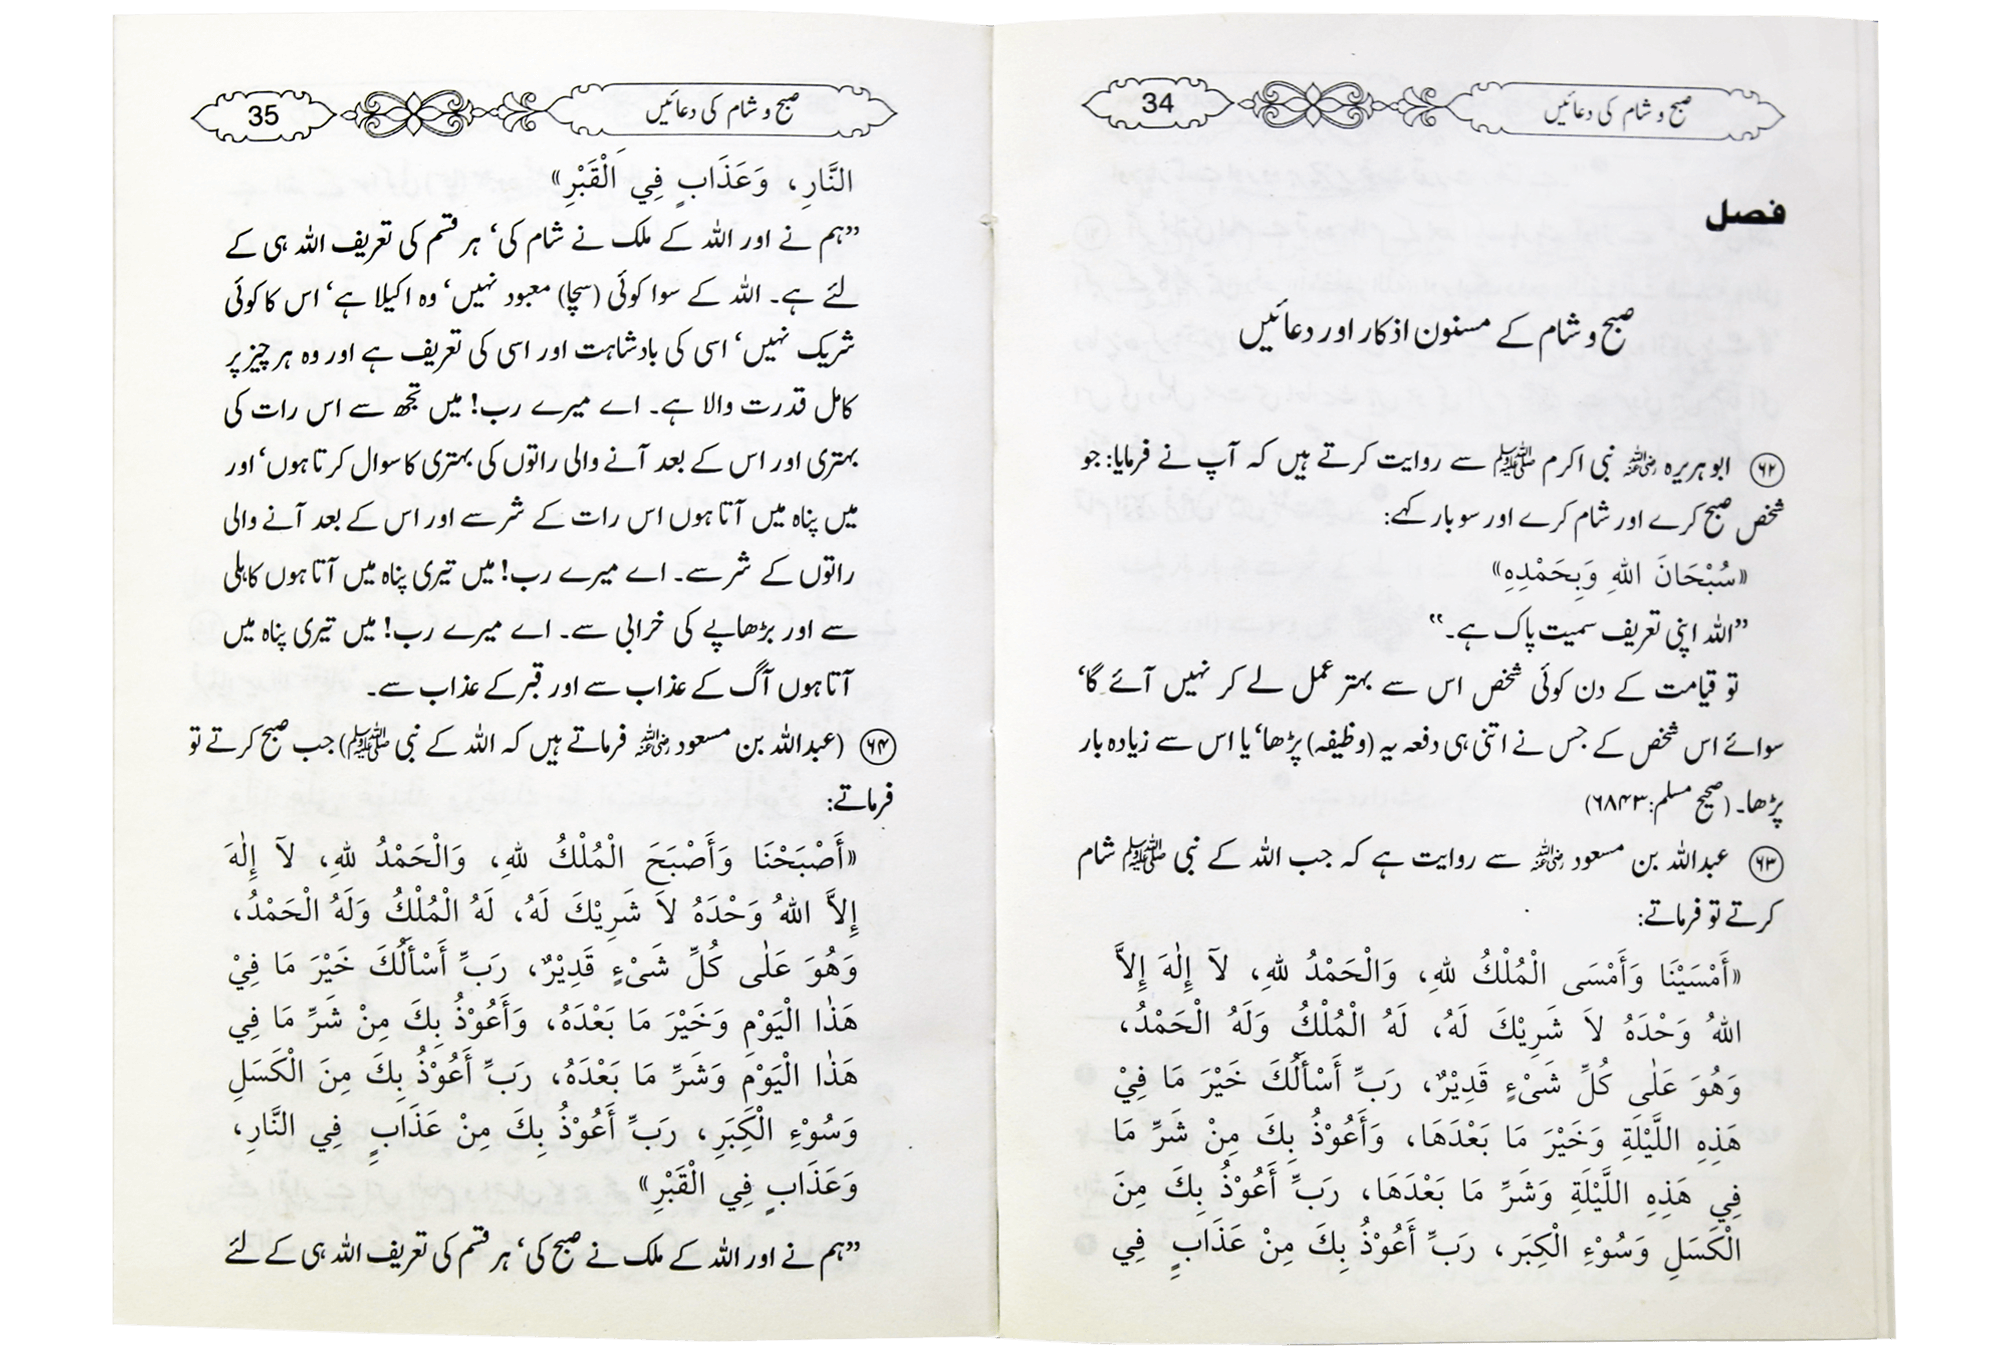 صبح و شام کی دعائیں 34
فصل
صبح و شام کے مسنون اذکار اور دعائیں
۶۲ ابو ہریرہ رضی اللہ عنہ نبی اکرم ﷺ سے روایت کرتے ہیں کہ آپ نے فرمایا: جو
شخص صبح کرے اور شام کرے اور سو بار کہے:
«سُبْحَانَ اللهِ وَبِحَمْدِهِ»
”اللہ اپنی تعریف سمیت پاک ہے۔“
تو قیامت کے دن کوئی شخص اس سے بہتر عمل لے کر نہیں آئے گا‘
سوائے اس شخص کے جس نے اتنی ہی دفعہ یہ (وظیفہ) پڑھا‘ یا اس سے زیادہ بار
پڑھا۔ (صحیح مسلم: ۶۸۴۳)
۶۳ عبداللہ بن مسعود رضی اللہ عنہ سے روایت ہے کہ جب اللہ کے نبی ﷺ شام
کرتے تو فرماتے:
«أَمْسَيْنَا وَأَمْسَى الْمُلْكُ لِلهِ، وَالْحَمْدُ لِلهِ، لَآ إِلٰهَ إِلاَّ
اللهُ وَحْدَهُ لاَ شَرِيْكَ لَهُ، لَهُ الْمُلْكُ وَلَهُ الْحَمْدُ،
وَهُوَ عَلٰى كُلِّ شَىْءٍ قَدِيْرٌ، رَبِّ أَسْأَلُكَ خَيْرَ مَا فِيْ
هَذِهِ اللَّيْلَةِ وَخَيْرَ مَا بَعْدَهَا، وَأَعُوْذُ بِكَ مِنْ شَرِّ مَا
فِي هَذِهِ اللَّيْلَةِ وَشَرِّ مَا بَعْدَهَا، رَبِّ أَعُوْذُ بِكَ مِنَ
الْكَسَلِ وَسُوْءِ الْكِبَرِ، رَبِّ أَعُوْذُ بِكَ مِنْ عَذَابٍ فِي
صبح و شام کی دعائیں 35
النَّارِ، وَعَذَابٍ فِي الْقَبْرِ»
”ہم نے اور اللہ کے ملک نے شام کی‘ ہر قسم کی تعریف اللہ ہی کے
لئے ہے۔ اللہ کے سوا کوئی (سچا) معبود نہیں‘ وہ اکیلا ہے‘ اس کا کوئی
شریک نہیں‘ اسی کی بادشاہت اور اسی کی تعریف ہے اور وہ ہر چیز پر
کامل قدرت والا ہے۔ اے میرے رب! میں تجھ سے اس رات کی
بہتری اور اس کے بعد آنے والی راتوں کی بہتری کا سوال کرتا ہوں‘ اور
میں پناہ میں آتا ہوں اس رات کے شر سے اور اس کے بعد آنے والی
راتوں کے شر سے۔ اے میرے رب! میں تیری پناہ میں آتا ہوں کاہلی
سے اور بڑھاپے کی خرابی سے۔ اے میرے رب! میں تیری پناہ میں
آتا ہوں آگ کے عذاب سے اور قبر کے عذاب سے۔
۶۴ (عبداللہ بن مسعود رضی اللہ عنہ فرماتے ہیں کہ اللہ کے نبی ﷺ) جب صبح کرتے تو
فرماتے:
«أَصْبَحْنَا وَأَصْبَحَ الْمُلْكُ لِلهِ، وَالْحَمْدُ لِلهِ، لَآ إِلٰهَ
إِلاَّ اللهُ وَحْدَهُ لاَ شَرِيْكَ لَهُ، لَهُ الْمُلْكُ وَلَهُ الْحَمْدُ،
وَهُوَ عَلٰى كُلِّ شَىْءٍ قَدِيْرٌ، رَبِّ أَسْأَلُكَ خَيْرَ مَا فِيْ
هَذَا الْيَوْمِ وَخَيْرَ مَا بَعْدَهُ، وَأَعُوْذُ بِكَ مِنْ شَرِّ مَا فِي
هَذَا الْيَوْمِ وَشَرِّ مَا بَعْدَهُ، رَبِّ أَعُوْذُ بِكَ مِنَ الْكَسَلِ
وَسُوْءِ الْكِبَرِ، رَبِّ أَعُوْذُ بِكَ مِنْ عَذَابٍ فِي النَّارِ،
وَعَذَابٍ فِي الْقَبْرِ»
”ہم نے اور اللہ کے ملک نے صبح کی‘ ہر قسم کی تعریف اللہ ہی کے لئے